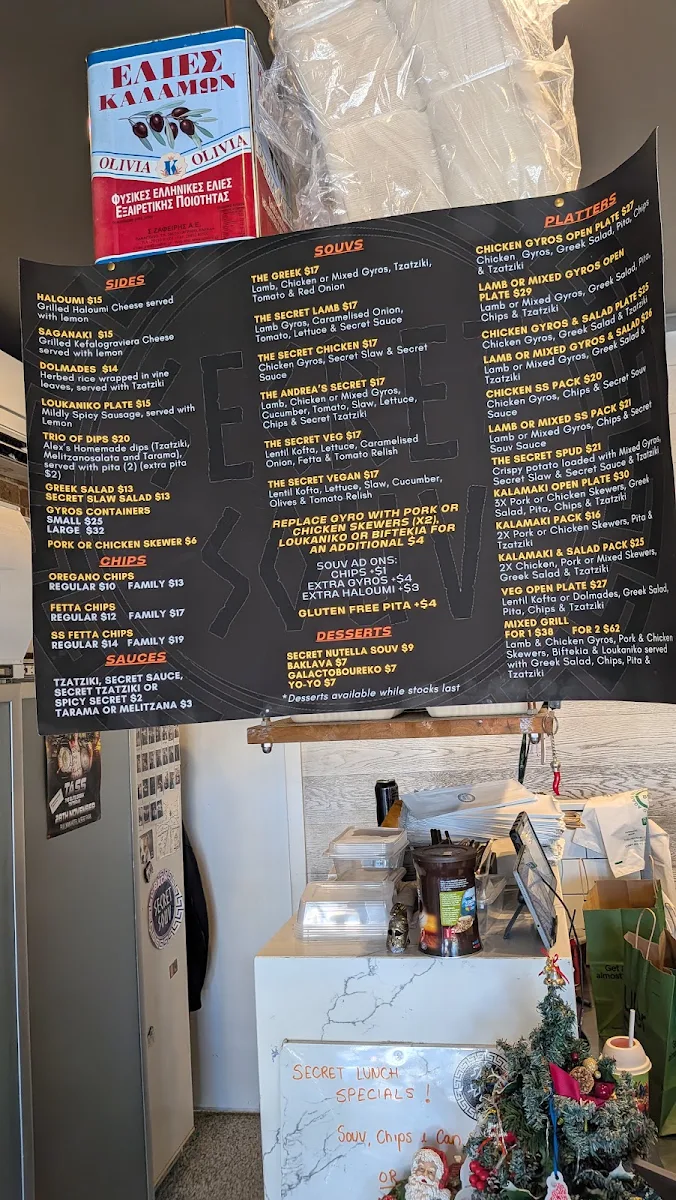 ΕΛΙΕΣ
ΚΑΛΑΜΩΝ
OLIVIA K OLIVIA
ΦΥΣΙΚΕΣ ΕΛΛΗΝΙΚΕΣ ΕΛΙΕΣ
ΕΞΑΙΡΕΤΙΚΗΣ ΠΟΙΟΤΗΤΑΣ
SIDES
HALOUMI $15
Grilled Haloumi Cheese served
with lemon
SAGANAKI $15
Grilled Kefalograviera Cheese
served with lemon
DOLMADES $14
Herbed rice wrapped in vine
leaves, served with Tzatziki
LOUKANIKO PLATE $15
Mildly Spicy Sausage, served with
Lemon
TRIO OF DIPS $20
Alex's Homemade dips (Tzatziki,
Melitzanosalata and Tarama),
served with pita (2) (extra pita
$2)
GREEK SALAD $13
SECRET SLAW SALAD $13
GYROS CONTAINERS
SMALL $25
LARGE $32
PORK OR CHICKEN SKEWER $6
CHIPS
OREGANO CHIPS
REGULAR $10 FAMILY $13
FETTA CHIPS
REGULAR $12 FAMILY $17
SS FETTA CHIPS
REGULAR $14 FAMILY $19
SAUCES
TZATZIKI, SECRET SAUCE,
SECRET TZATZIKI OR
SPICY SECRET $2
TARAMA OR MELITZANA $3
SOUVS
THE GREEK $17
Lamb, Chicken or Mixed Gyros, Tzatziki,
Tomato & Red Onion
THE SECRET LAMB $17
Lamb Gyros, Caramelised Onion,
Tomato, Lettuce & Secret Sauce
THE SECRET CHICKEN $17
Chicken Gyros, Secret Slaw & Secret
Sauce
THE ANDREA'S SECRET $17
Lamb, Chicken or Mixed Gyros,
Cucumber, Tomato, Slaw, Lettuce,
Chips & Secret Tzatziki
THE SECRET VEG $17
Lentil Kofta, Lettuce, Caramelised
Onion, Fetta & Tomato Relish
THE SECRET VEGAN $17
Lentil Kofta, Lettuce, Slaw, Cucumber,
Olives & Tomato Relish
REPLACE GYRO WITH PORK OR
CHICKEN SKEWERS (X2),
LOUKANIKO OR BIFTEKIA FOR
AN ADDITIONAL $4
SOUV AD ONS:
CHIPS +$1
EXTRA GYROS +$4
EXTRA HALOUMI +$3
GLUTEN FREE PITA +$4
DESSERTS
SECRET NUTELLA SOUV $9
BAKLAVA $7
GALACTOBOUREKO $7
YO-YO $7
*Desserts available while stocks last
PLATTERS
CHICKEN GYROS OPEN PLATE $27
Chicken Gyros, Greek Salad, Pita, Chips
& Tzatziki
LAMB OR MIXED GYROS OPEN
PLATE $29
Lamb or Mixed Gyros, Greek Salad, Pita,
Chips & Tzatziki
CHICKEN GYROS & SALAD PLATE $25
Chicken Gyros, Greek Salad & Tzatziki
LAMB OR MIXED GYROS & SALAD $26
Lamb or Mixed Gyros, Greek Salad &
Tzatziki
CHICKEN SS PACK $20
Chicken Gyros, Chips & Secret Souv
Sauce
LAMB OR MIXED SS PACK $21
Lamb or Mixed Gyros, Chips & Secret
Souv Sauce
THE SECRET SPUD $21
Crispy potato loaded with Mixed Gyros,
Secret Slaw & Secret Sauce & Tzatziki
KALAMAKI OPEN PLATE $30
3X Pork or Chicken Skewers, Greek
Salad, Pita, Chips & Tzatziki
KALAMAKI PACK $16
2X Pork or Chicken Skewers, Pita &
Tzatziki
KALAMAKI & SALAD PACK $25
2X Chicken, Pork or Mixed Skewers,
Greek Salad & Tzatziki
VEG OPEN PLATE $27
Lentil Kofta or Dolmades, Greek Salad,
Pita, Chips & Tzatziki
MIXED GRILL
FOR 1 $38 FOR 2 $62
Lamb & Chicken Gyros, Pork & Chicken
Skewers, Biftekia & Loukaniko served
with Greek Salad, Chips, Pita &
Tzatziki
SECRET
SOUV
TASS
28TH NOVEMBER
SECRET
SOUV
SECRET LUNCH
SPECIALS!
Souv, Chips & Can
OR